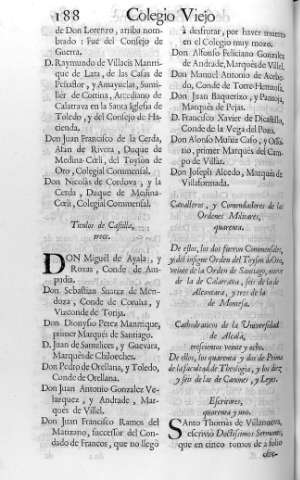 188 Colegio Viejo
de Don Lorenzo, arriba nombrado : Fue del Consejo de
Guerra.
D. Raymundo de Villacis Manrrique de Lara, de las Casas de
Peñaflor, y Amayuelas, Sumiller de Cortina, Arcediano de
Calatrava en la Santa Iglesia de
Toledo, y del Consejo de Hacienda.
Don Juan Francisco de la Cerda,
Afan de Rivera, Duque de
Medina-Cœli, del Toyson de
Oro, Colegial Commensal.
Don Nicolás de Cordova, y la
Cerda, Duque de Medina-
Cœli, Colegial Commensal.
Titulos de Castilla,
trece.
DON Miguèl de Ayala, y
Roxas, Conde de Ampudia.
Don Sebastian Suarez de Mendoza, Conde de Coruña, y
Vizconde de Torija.
Don Dionysio Perez Manrrique,
primer Marquès de Santiago.
D. Juan de Santelices, y Guevara,
Marquès de Chiloeches.
Don Pedro de Orellana, y Toledo,
Conde de Orellana.
Don Juan Antonio Gonzalez Velarquez, y Andrade, Marquès de Villel.
Don Juan Francisco Ramos del
Manzano, successor del Condado de Francos, que no llegò
à disfrutar, por haver muerto
en el Colegio muy mozo.
Don Alfonso Feliciano Gonzalez
de Andrade, Marquès de Villel.
Don Manuel Antonio de Acebedo, Conde de Torre-Hermosa.
Don Juan Baquerizo, y Pantoja,
Marquès de Pejas.
D. Francisco Xavier de Dicastillo,
Conde de la Vega del Pozo.
Don Alonso Muñiz Caso, y Ossorio, primer Marquès del Campo de Villar.
Don Joseph Alcedo, Marquès de
Villaformada.
Cavalleros, y Comendadores de las
Ordenes Militares,
quarenta.
De ellos, los dos fueron Commensales,
y del insigne Orden del Toyson de Oro,
veinte de la Orden de Santiago, nueve
de la de Calatrava, seis de la de
Alcantara, y tres de la
de Montesa.
Cathedraticos de la Universidad
de Alcalà,
trescientos veinte y ocho.
De ellos, los quarenta y dos de Prima
de la facultad de Theologia, y los diez
y seis de las de Canones, y Leyes.
Escritores,
quarenta y uno.
SAnto Thomàs de Villanueva,
escriviò Doctissimos Sermones,
que en cinco tomos de à folio